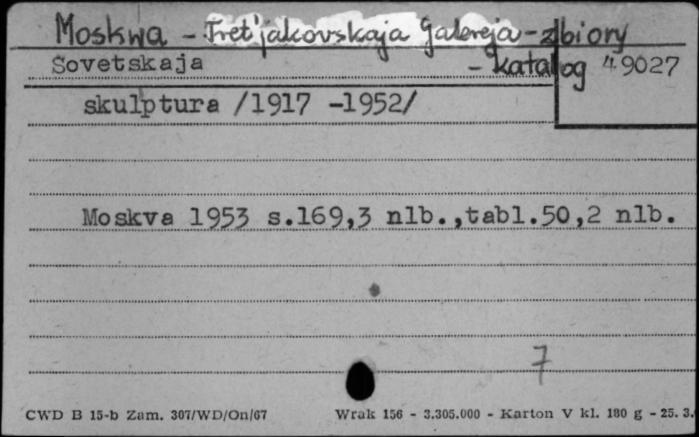 Moskwa - Tret'jakovskaja Galereja - zbiory
Sovetskaja - katalog 49027
skulptura /1917 -1952/
Moskva 1953 s.169,3 nlb.,tabl.50,2 nlb.
7
CWD B 15-b Zam. 307/WD/On/67 Wrak 156 - 3.305.000 - Karton V kl. 180 g - 25. 3.